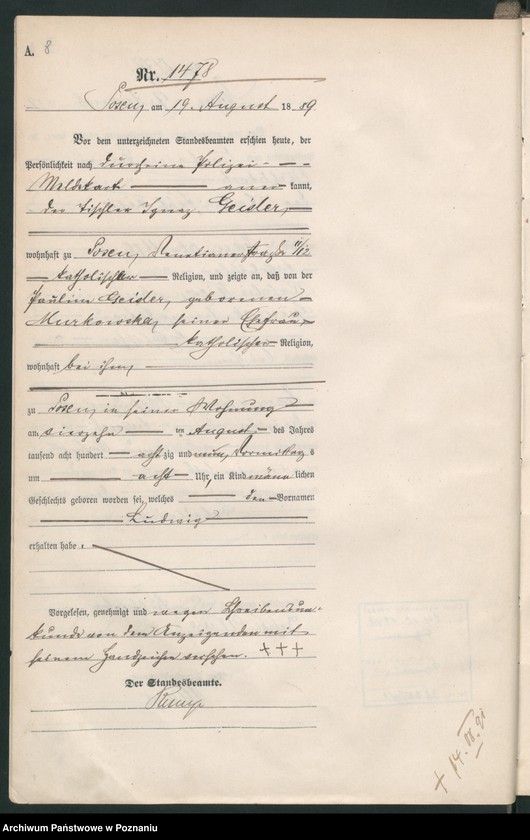 A. 8
Nr. 1478
Posen, am 19. August 1889
Vor dem unterzeichneten Standesbeamten erschien heute, der
Persönlichkeit nach durch seine Polizei-
Meldekarte kannt,
der Tischler Ignaz Geisler,
wohnhaft zu Posen, Venetianerstraße 11/12
katholischer Religion, und zeigte an, daß von der
Pauline Geisler, geborenen
Murkowska, seiner Ehefrau,
katholischer Religion,
wohnhaft bei ihm,
zu Posen, in seiner Wohnung
am vierzehn ten August des Jahres
tausend acht hundert achtzig und neun, Vormittags
um acht Uhr, ein Kind männlichen
Geschlechts geboren worden sei, welches den Vornamen
Ludwig
erhalten habe.
Vorgelesen, genehmigt und wegen Schreibensun-
kunde von dem Anzeigenden mit
seinem Handzeichen versehen. +++
Der Standesbeamte.
+ 14.
Archiwum Państwowe w Poznaniu